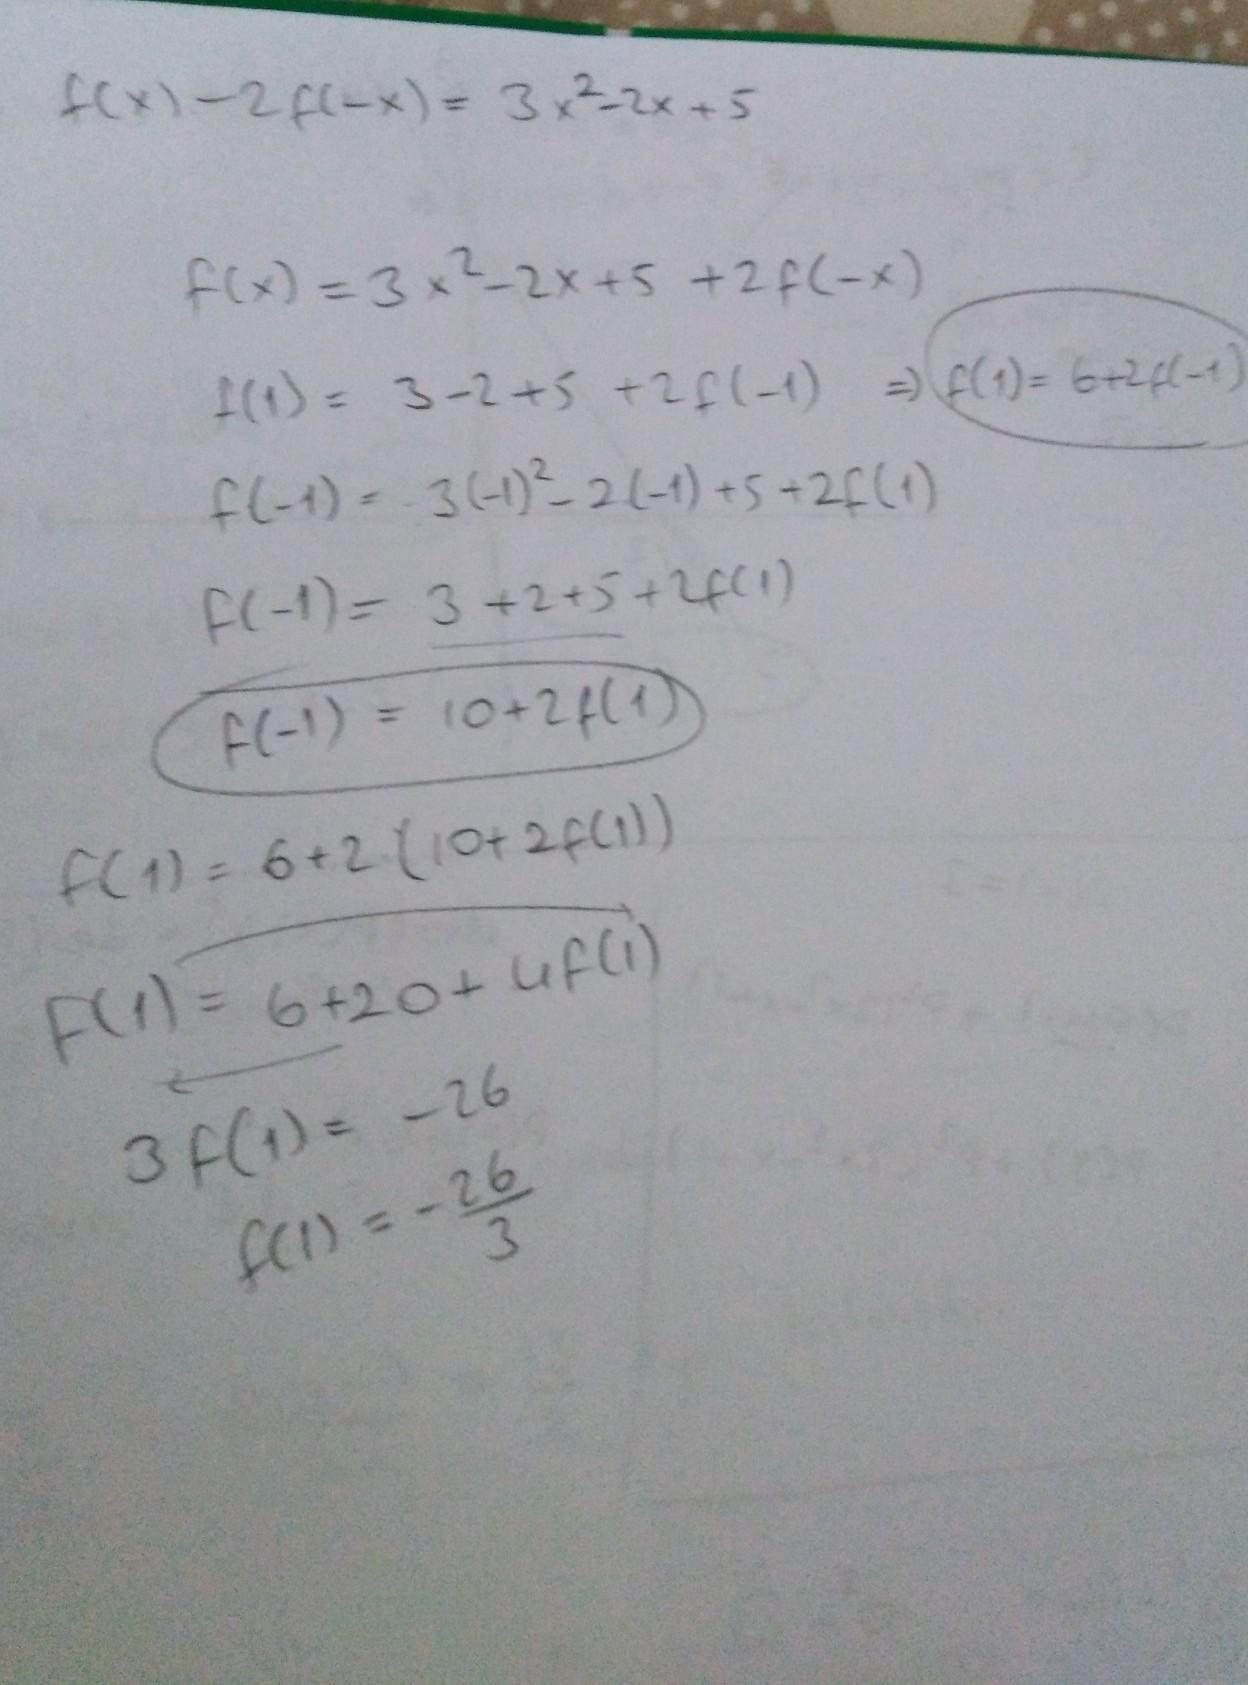 f(x) - 2f(-x) = 3x² - 2x + 5
f(x) = 3x² - 2x + 5 + 2f(-x)
f(1) = 3 - 2 + 5 + 2f(-1) ⇒ f(1) = 6 + 2f(-1)
f(-1) = 3(-1)² - 2(-1) + 5 + 2f(1)
f(-1) = 3 + 2 + 5 + 2f(1)
f(-1) = 10 + 2f(1)
f(1) = 6 + 2·(10 + 2f(1))
f(1) = 6 + 20 + 4f(1)
3f(1) = -26
f(1) = -26/3